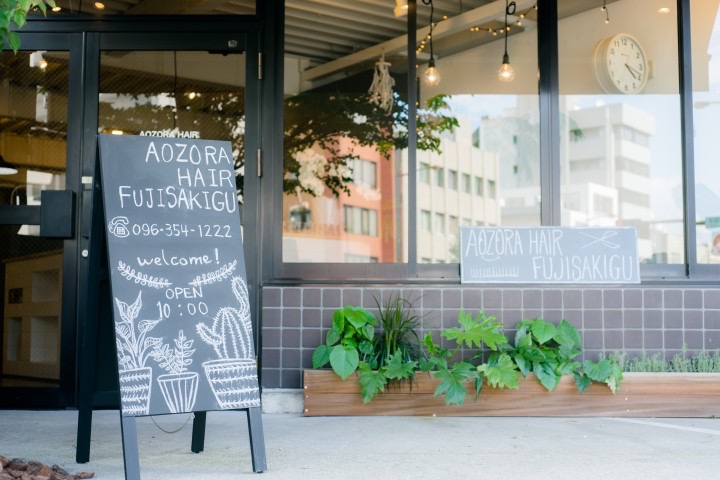 AOZORA HAIR
AOZORA
HAIR
FUJISAKIGU
096-354-1222
welcome!
OPEN
10:00
AOZORA HAIR
FUJISAKIGU